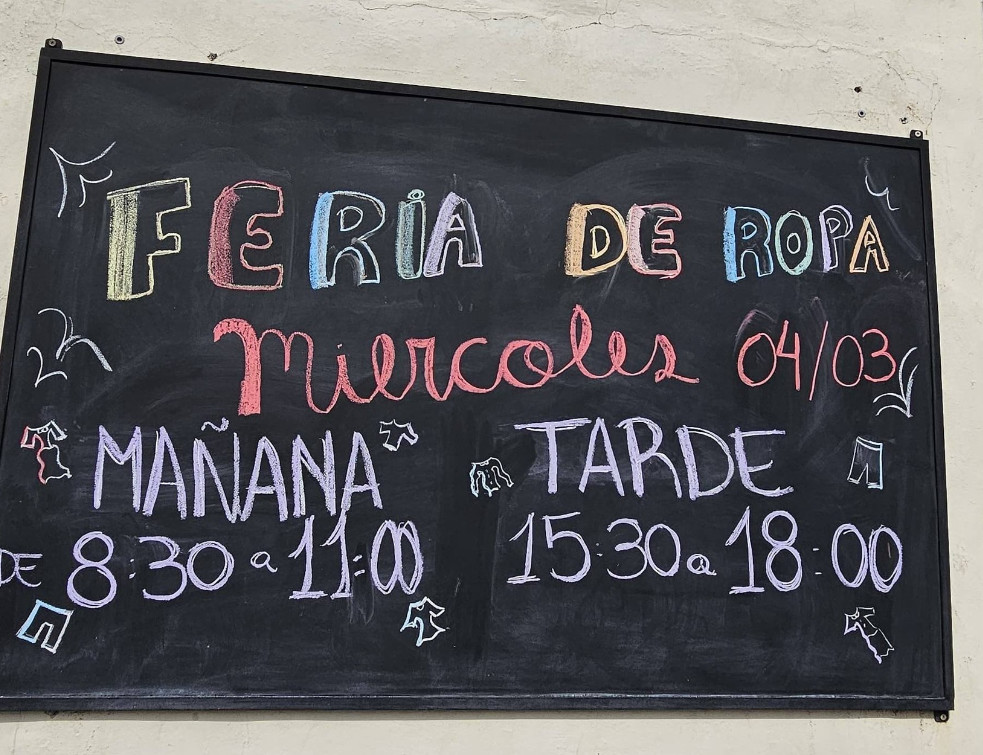 FERiA DE ROPA
Miercoles 04/03
MAÑANA TARDE
DE 8:30 a 11:00 15:30 a 18:00